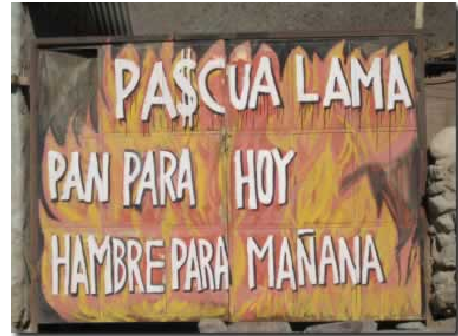 PA$CUA LAMA
PAN PARA HOY
HAMBRE PARA MAÑANA